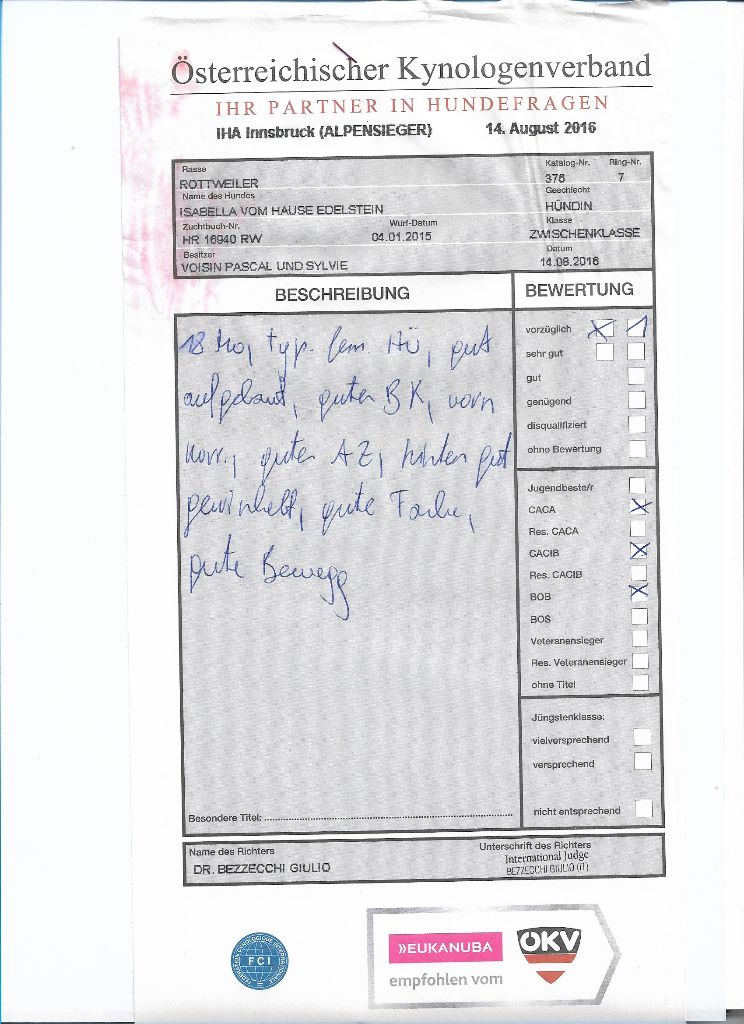 Österreichischer Kynologenverband
IHR PARTNER IN HUNDEFRAGEN
IHA Innsbruck (ALPENSIEGER) 14. August 2016
Rasse Katalog-Nr. Ring-Nr.
ROTTWEILER 376 7
Name des Hundes Geschlecht
ISABELLA VOM HAUSE EDELSTEIN HÜNDIN
Zuchtbuch-Nr. Wurf-Datum Klasse
HR 16940 RW 04.01.2015 ZWISCHENKLASSE
Besitzer Datum
VOISIN PASCAL UND SYLVIE 14.08.2016
BESCHREIBUNG
18 Mo, typ. fem. Hü, gut
aufgebaut, guter BK, vorn
korr., guter AZ, hinten gut
gewinkelt, gute Farbe,
gute Bewegg
Besondere Titel:
BEWERTUNG
vorzüglich
sehr gut
gut
genügend
disqualifiziert
ohne Bewertung
Jugendbeste/r
CACA
Res. CACA
CACIB
Res. CACIB
BOB
BOS
Veteranensieger
Res. Veteranensieger
ohne Titel
Jüngstenklasse:
vielversprechend
versprechend
nicht entsprechend
Name des Richters
DR. BEZZECCHI GIULIO
Unterschrift des Richters
International Judge
BEZZECCHI GIULIO (IT)
FCI
»EUKANUBA
empfohlen vom
ÖKV